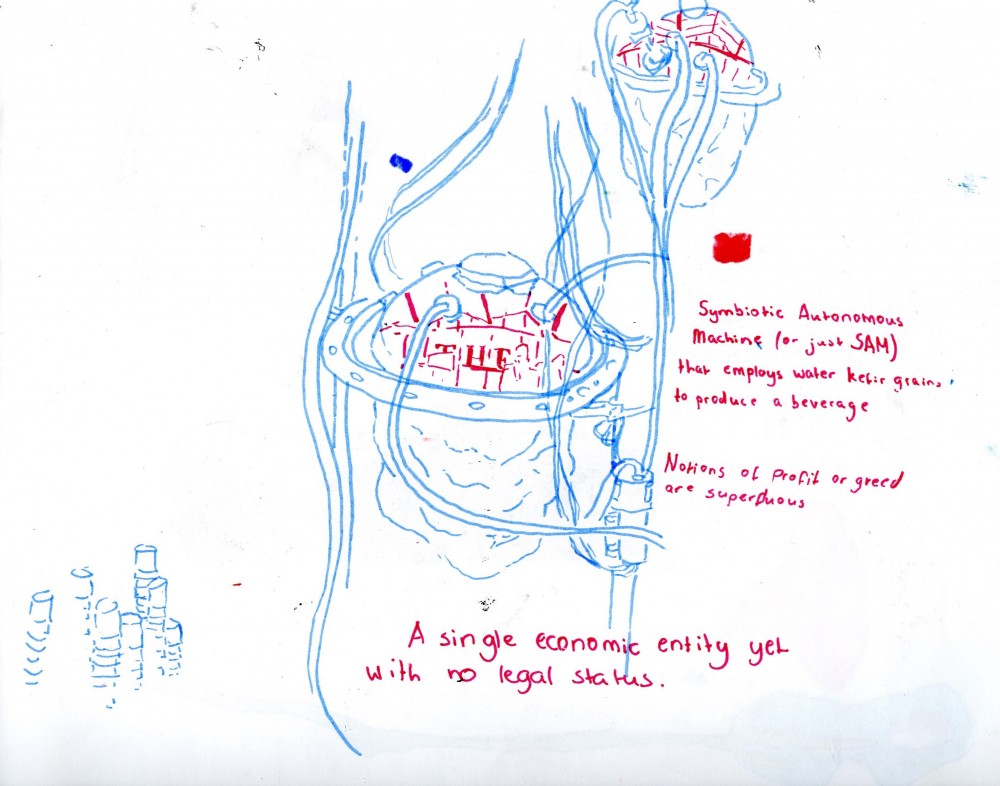 THE
Symbiotic Autonomous
Machine (or just SAM)
that employs water kefir grains
to produce a beverage
Notions of profit or greed
are superfluous
A single economic entity yet
with no legal status.